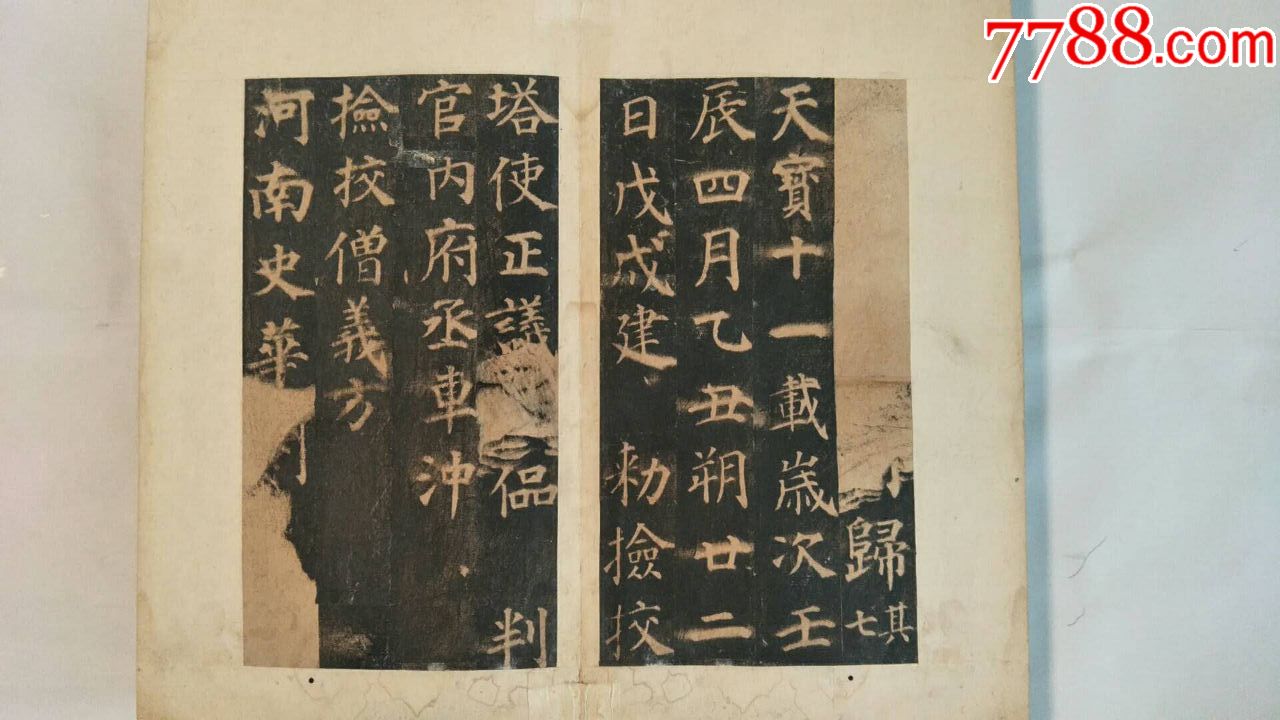 7788.com
歸其七
天寶十一載歲次壬
辰四月乙丑朔廿二
日戊戌建 勑撿挍
塔使正議 偘 判
官內府丞車沖
撿挍僧義方
河南史華